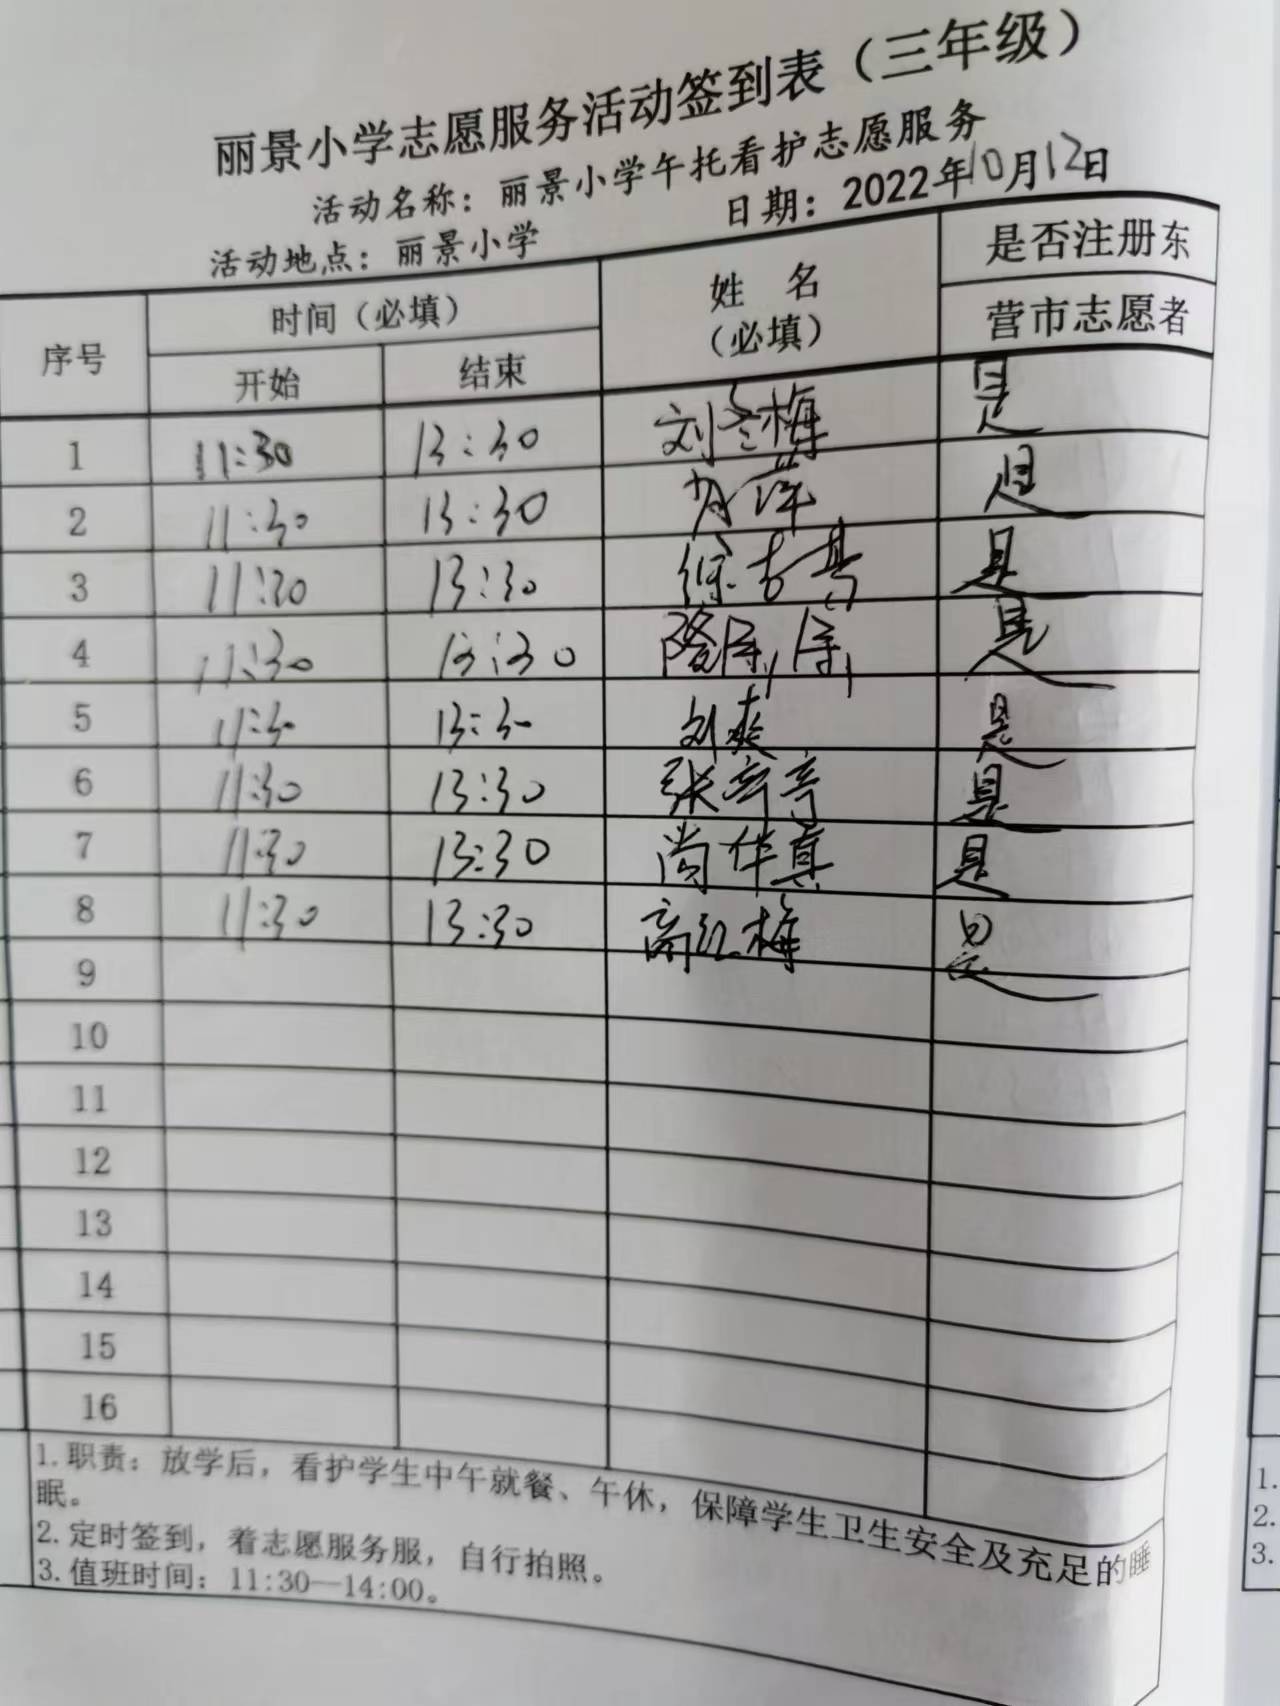 丽景小学志愿服务活动签到表（三年级）
活动名称：丽景小学午托看护志愿服务
活动地点：丽景小学 日期：2022年10月12日
序号 时间（必填） 姓 名（必填） 是否注册东营市志愿者
开始 结束
1 11:30 13:30 刘冬梅 是
2 11:30 13:30 肖萍 是
3 11:30 13:30 徐 是
4 11:30 13:30 隆 是
5 11:30 13:30 刘爽 是
6 11:30 13:30 张 是
7 11:30 13:30 尚伴真 是
8 11:30 13:30 高红梅 是
9
10
11
12
13
14
15
16
1.职责：放学后，看护学生中午就餐、午休，保障学生卫生安全及充足的睡
眠。
2.定时签到，着志愿服务服，自行拍照。
3.值班时间：11:30—14:00。
1.
2.
3.